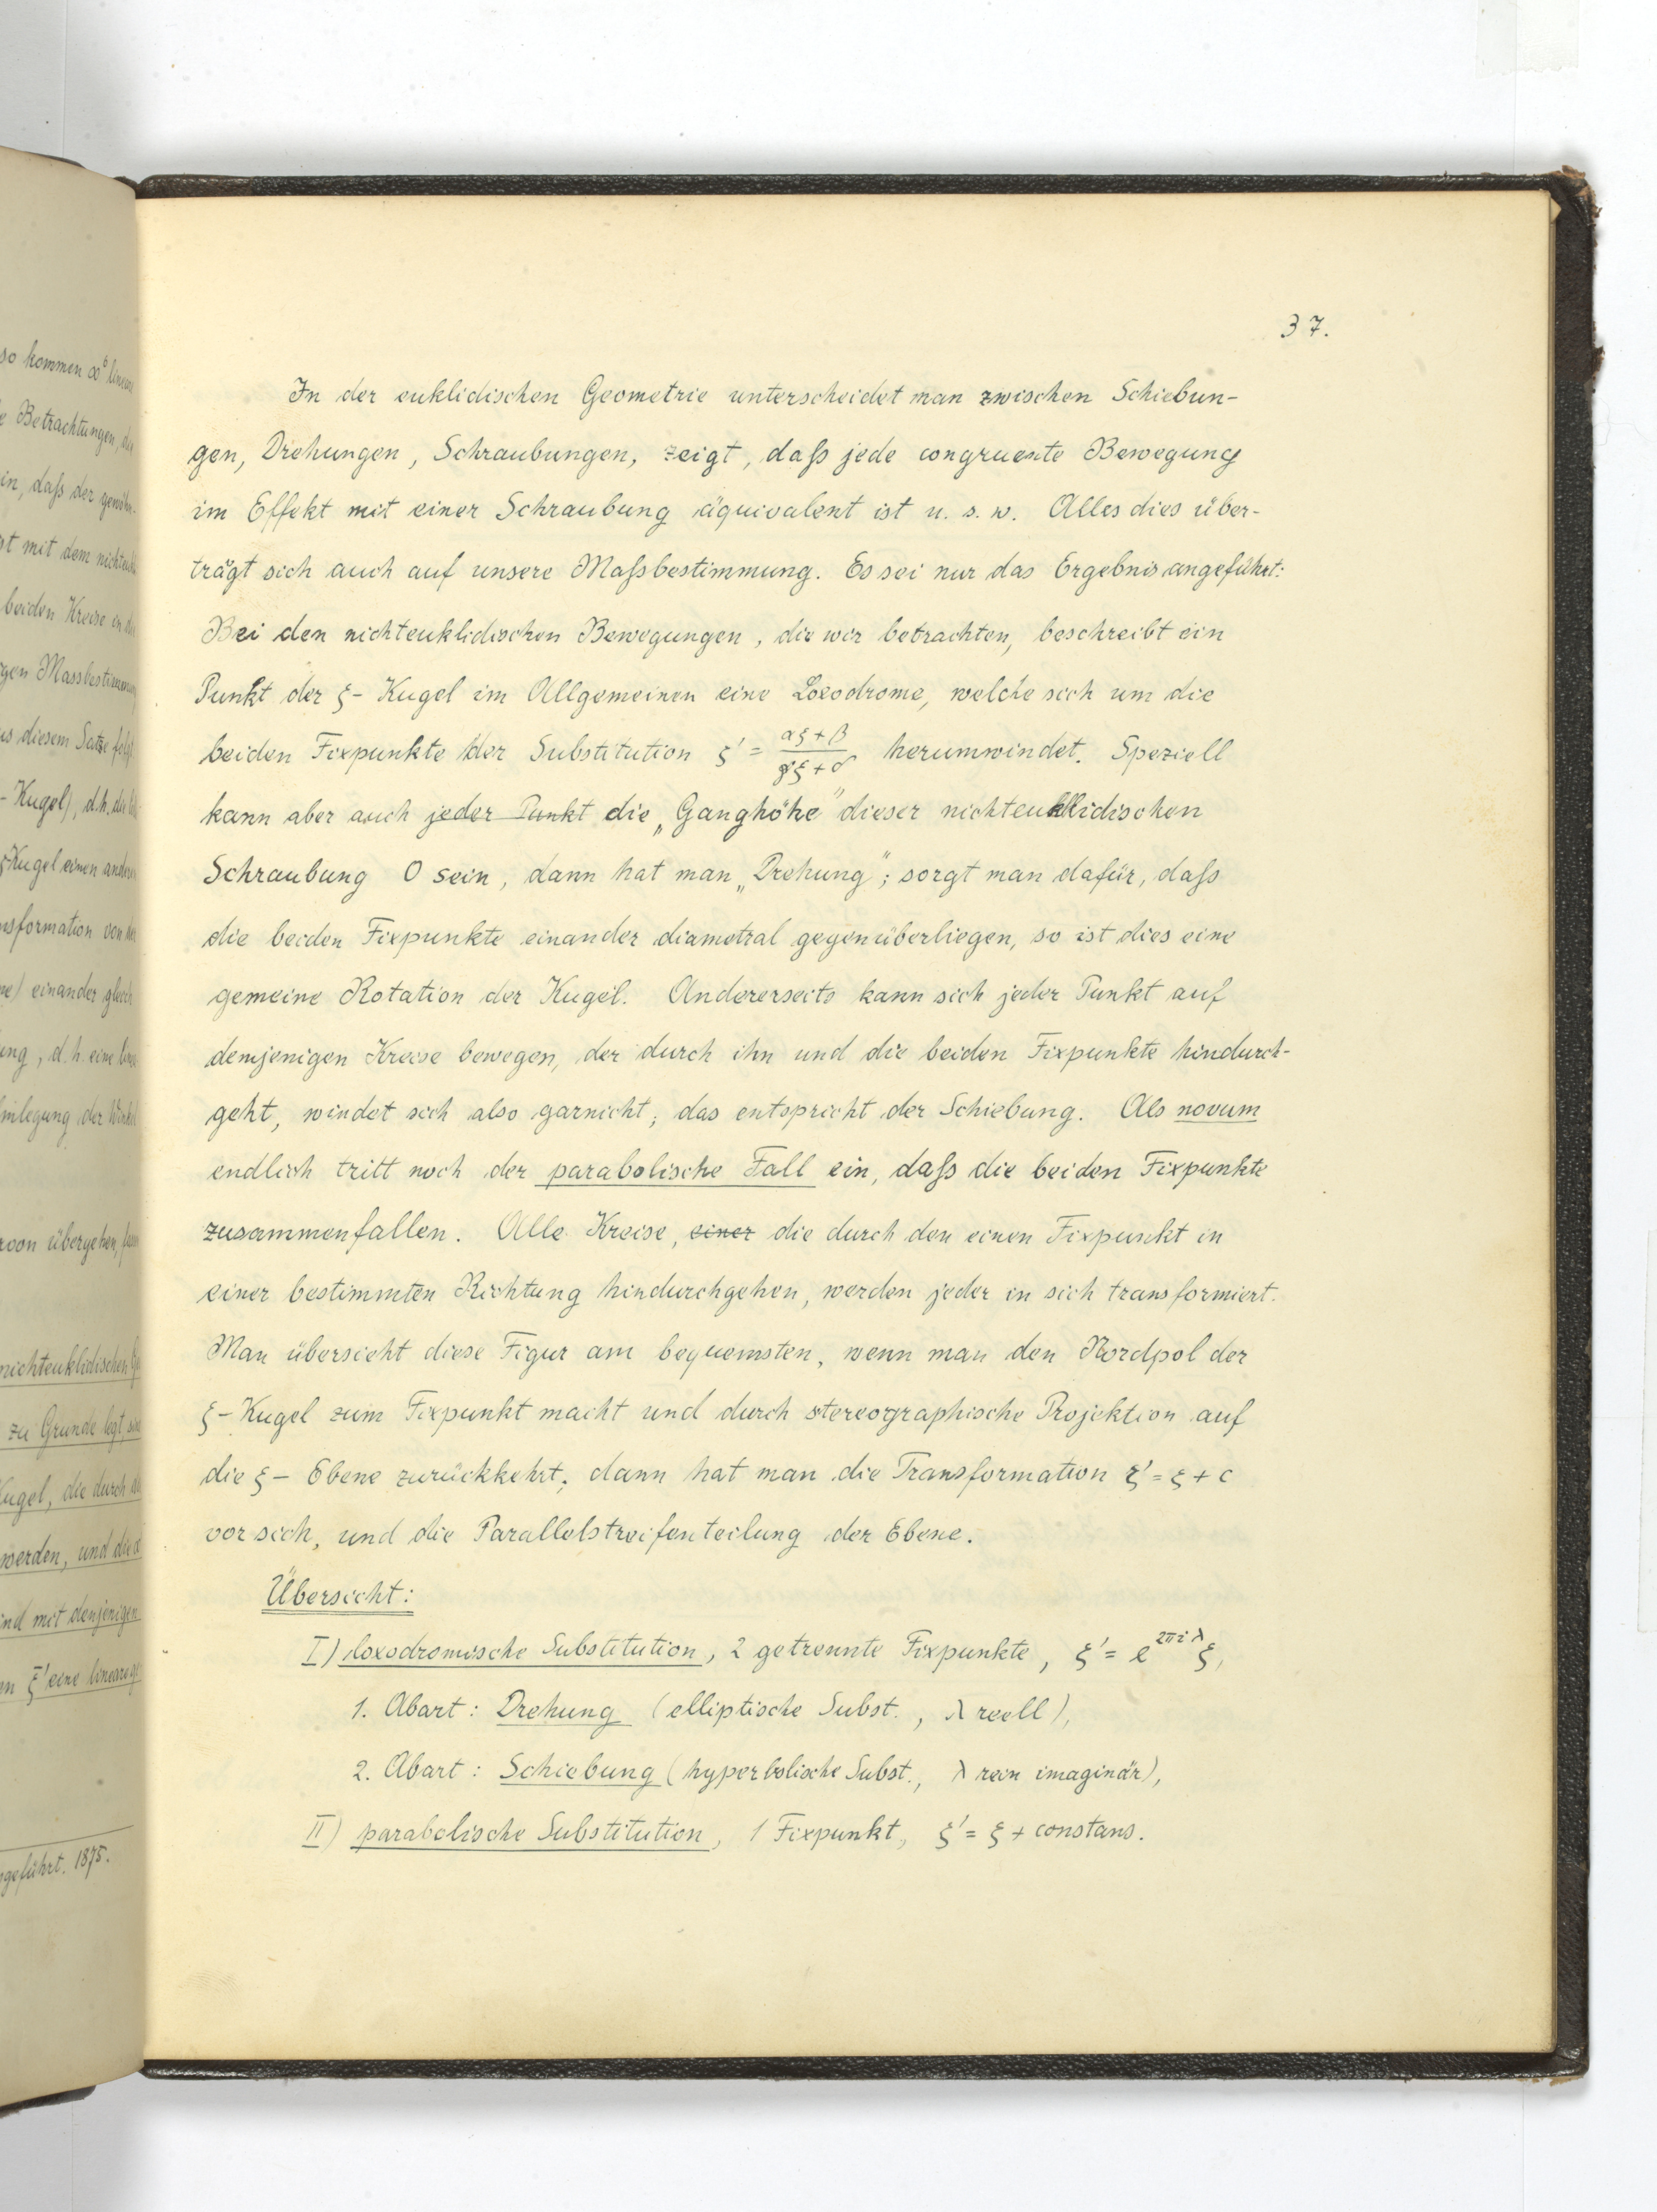 so kommen ∞⁶ linear
e Betrachtungen, die
in, daſs der gewöhn-
st mit dem nichteukli
beiden Kreise in der
gen Massbestimmung
us diesem Satze folgt
- Kugel), d.h. die
ξ Kugel einen anderen
nsformation von der
ne) einander gleich
ung, d.h. eine linea
inlegung der Winkel
roon übergehen,
nichteuklidischen
zu Grunde legt,
Kugel, die durch
werden, und die
ind mit denjenigen
en ξ' eine lineare
ngeführt. 1875.
37.
In der euklidischen Geometrie unterscheidet man zwischen Schiebun-
gen, Drehungen, Schraubungen, zeigt, daſs jede congruente Bewegung
im Effekt mit einer Schraubung äquivalent ist u. s. w. Alles dies über-
trägt sich auch auf unsere Maſsbestimmung. Es sei nur das Ergebnis angeführt:
Bei den nichteuklidischen Bewegungen, die wir betrachten, beschreibt ein
Punkt der ξ- Kugel im Allgemeinen eine Loxodrome, welche sich um die
beiden Fixpunkte der Substitution ξ' = (αξ + β)/(γξ + δ) herumwindet. Speziell
kann aber auch jeder Punkt die „Ganghöhe" dieser nichteuklidischen
Schraubung 0 sein, dann hat man „Drehung"; sorgt man dafür, daſs
die beiden Fixpunkte einander diametral gegenüberliegen, so ist dies eine
gemeine Rotation der Kugel. Andererseits kann sich jeder Punkt auf
demjenigen Kreise bewegen, der durch ihn und die beiden Fixpunkte hindurch-
geht, windet sich also garnicht; das entspricht der Schiebung. Als novum
endlich tritt noch der parabolische Fall ein, daſs die beiden Fixpunkte
zusammenfallen. Alle Kreise, einer die durch den einen Fixpunkt in
einer bestimmten Richtung hindurchgehen, werden jeder in sich transformiert.
Man übersieht diese Figur am bequemsten, wenn man den Nordpol der
ξ- Kugel zum Fixpunkt macht und durch stereographische Projektion auf
die ξ- Ebene zurückkehrt; dann hat man die Transformation ξ' = ξ + c
vor sich, und die Parallelstreifenteilung der Ebene.
Übersicht:
I) loxodromische Substitution, 2 getrennte Fixpunkte, ξ' = e^{2πiλ} ξ,
1. Abart: Drehung (elliptische Subst., λ reell),
2. Abart: Schiebung (hyperbolische Subst., λ rein imaginär),
II) parabolische Substitution, 1 Fixpunkt, ξ' = ξ + constans.